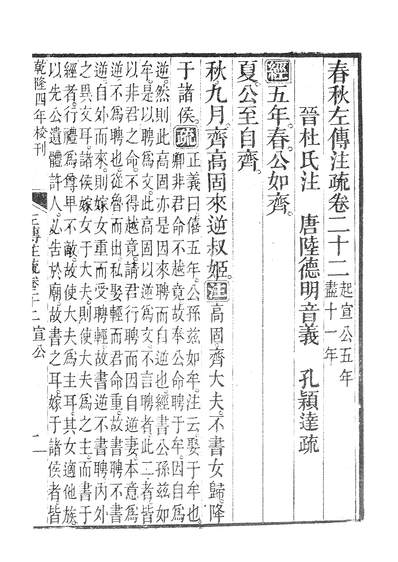 春秋左傳注疏卷二十二 起宣公五年
盡十一年
晉杜氏注 唐陸德明音義 孔穎達疏
經五年。春。公如齊。
夏。公至自齊。
秋。九月。齊高固來逆叔姬。注高固齊大夫。不書女歸。降
于諸侯。疏正義曰僖五年公孫茲如牟。注云娶于牟也。
卿非君命不越竟。故奉公命聘于牟。因自爲
逆。然則此高固亦是因來聘而自逆也。經書公孫茲如
牟。是以聘爲文。此高固言逆。不言聘者。此二者皆
以非君之命。不得越竟。請君行聘而因自逆妻本意爲
逆不爲聘也。從魯而出。私娶輕而君命重。故書聘不書
逆。自外而來。則嫁女重而受聘輕。故書逆不書聘。內外
之異文耳。諸侯嫁女于大夫。則使大夫爲之主。而書于
經者。行禮爲尊卑不敵。故使大夫爲主耳。其女適他族。
以先公遺體許人。必告於廟。故書之耳。嫁于諸侯者皆
乾隆四年校刊 左傳注疏卷二十二宣公 一